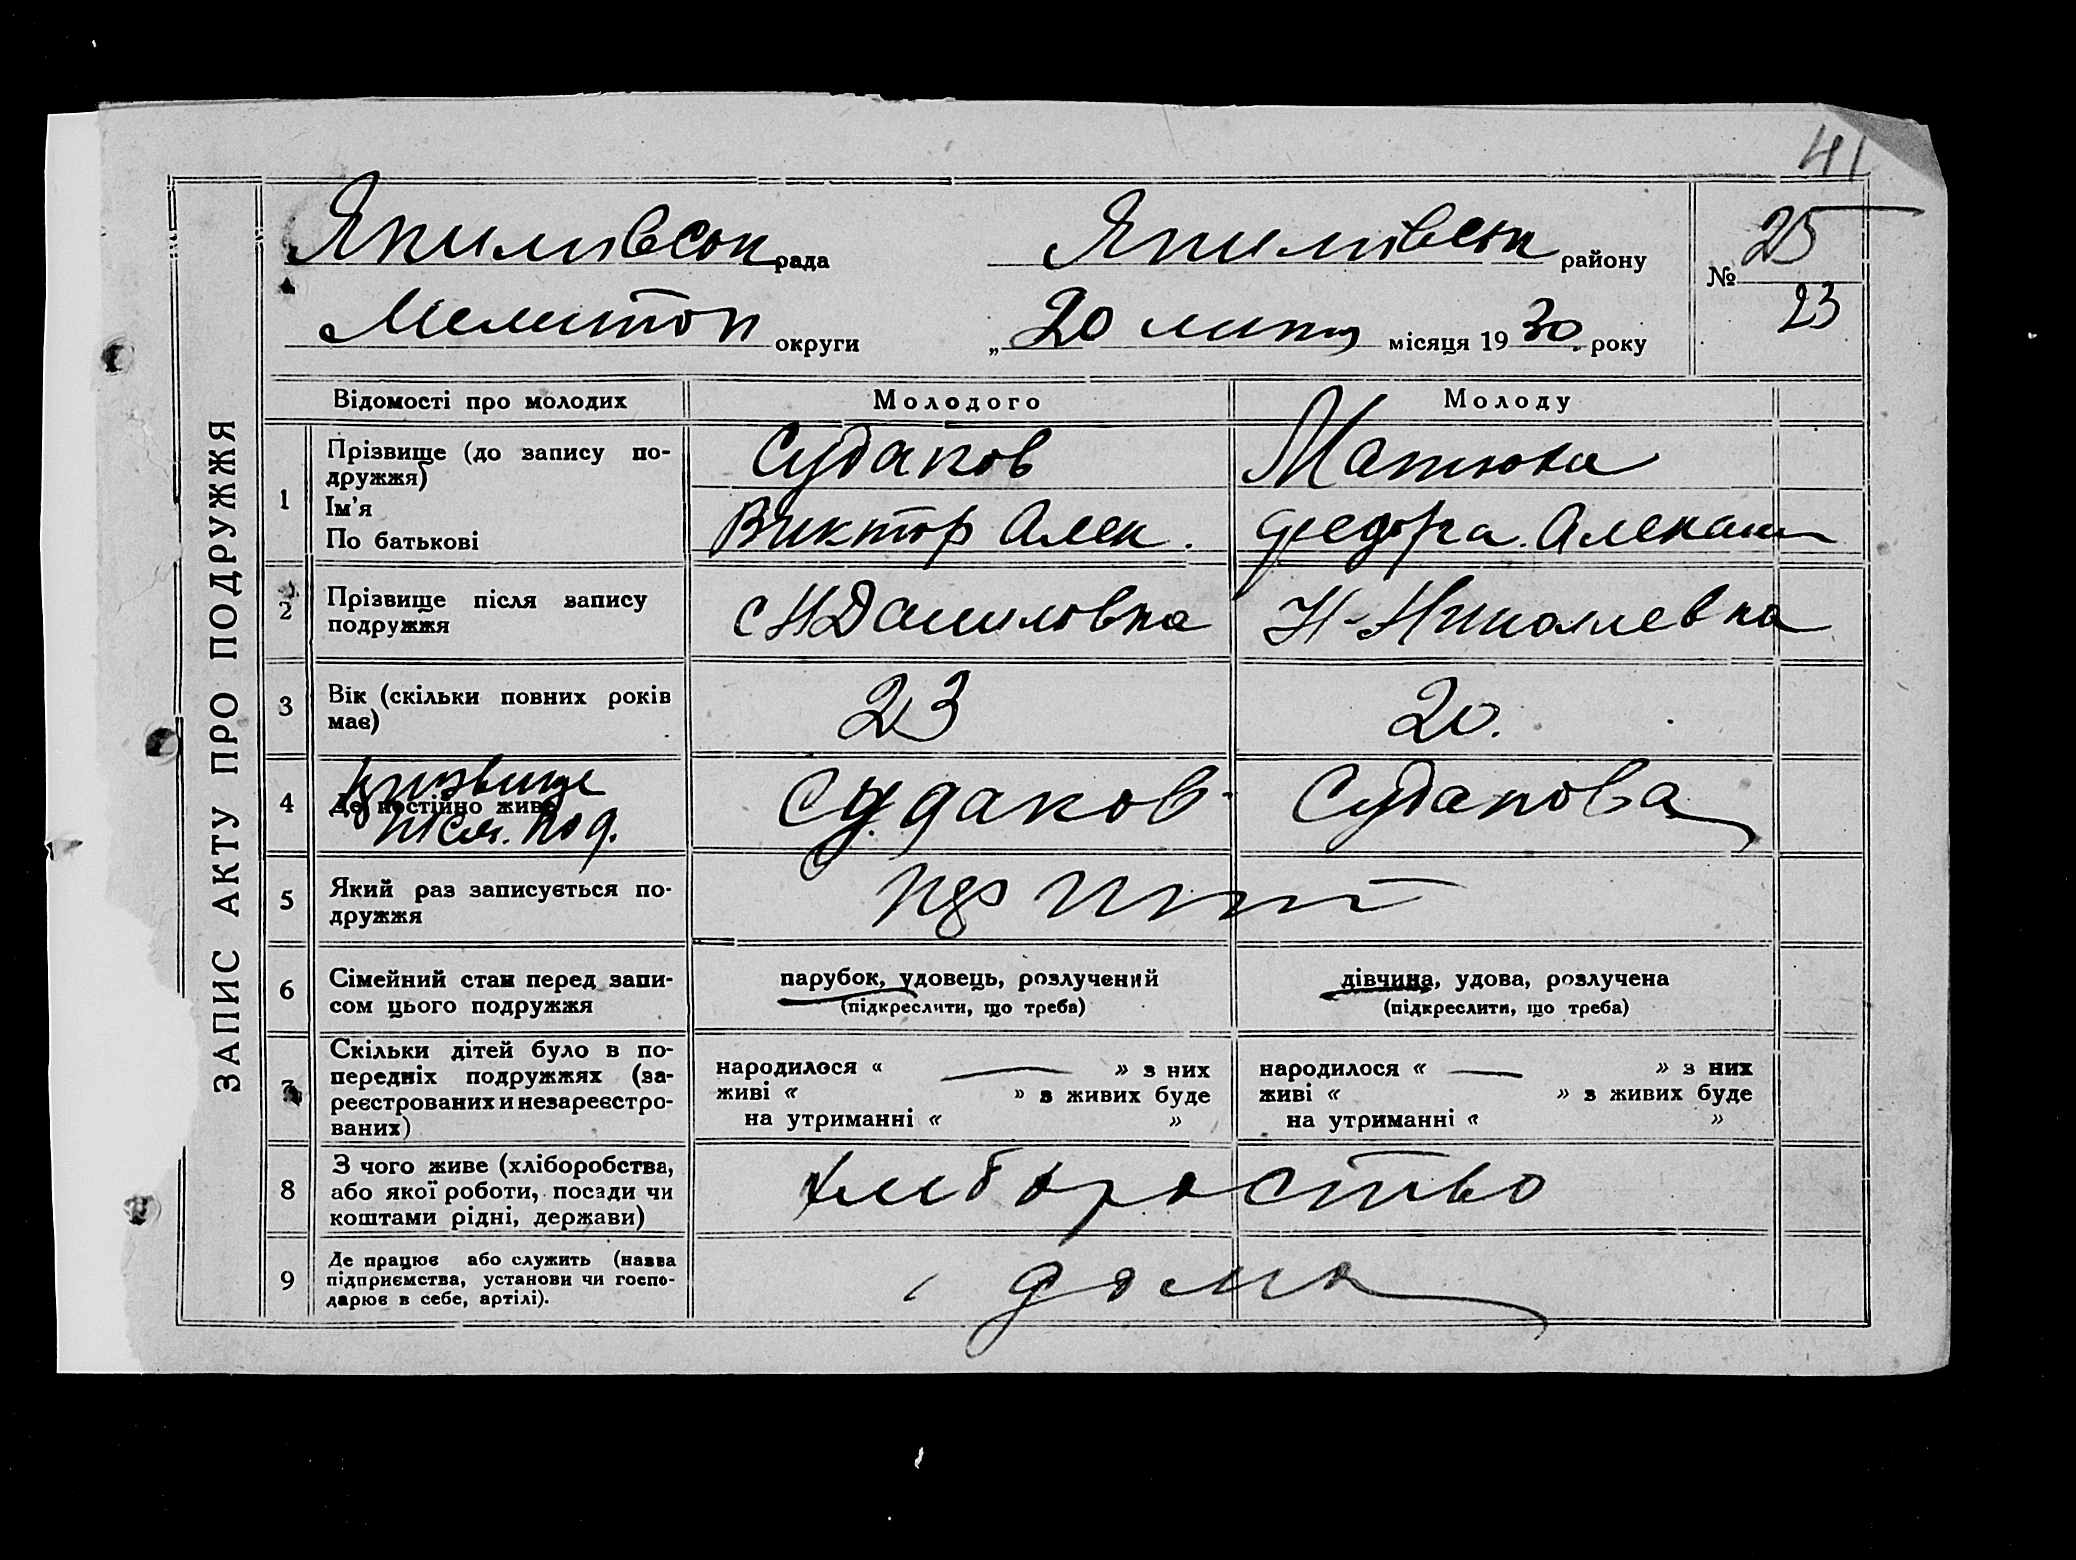 41
Якимівськ рада Якимівськ району № 25
23
Мелитоп округи „ 20 лют місяця 19 30 року
ЗАПИС АКТУ ПРО ПОДРУЖЖЯ
Відомості про молодих Молодого Молоду
1 Прізвище (до запису по-
дружжя)
Судаков
Ім'я
По батькові
Виктор Алек. Федора Алексан
2 Прізвище після запису
подружжя
с Н Даниловка Н-Николаевка
3 Вік (скільки повних років
має)
23 20.
4 Де постійно живе
призвище
писл. под.
Судаков Судакова
5 Який раз записується по-
дружжя
6 Сімейний стан перед запи-
сом цього подружжя
парубок, удовець, розлучений
(підкреслити, що треба)
дівчина, удова, розлучена
(підкреслити, що треба)
7 Скільки дітей було в по-
передніх подружжях (за-
реєстрованих и незареєстро-
ваних)
народилося « — » з них
живі « » з живих буде
на утриманні « »
народилося « — » з них
живі « » з живих буде
на утриманні « »
8 З чого живе (хліборобства,
або якої роботи, посади чи
коштами рідні, держави)
хлибороство
9 Де працює або служить (назва
підприємства, установи чи госпо-
дарює в себе, артілі).
дома